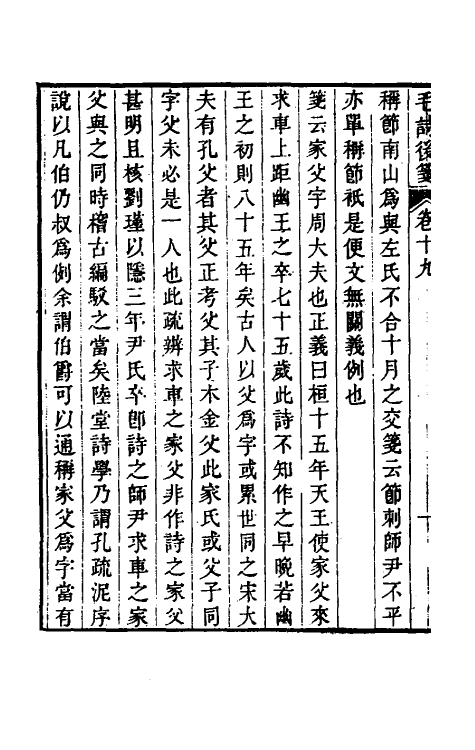 毛詩後箋 卷十九
稱節南山為與左氏不合十月之交箋云節刺師尹不平
亦單稱節祇是便文無關義例也
箋云家父字周大夫也正義曰桓十五年天王使家父來
求車上距幽王之卒七十五歲此詩不知作之早晚若幽
王之初則八十五年矣古人以父為字或累世同之宋大
夫有孔父者其父正考父其子木金父此家氏或父子同
字父未必是一人也此疏辨求車之家父非作詩之家父
甚明且核劉瑾以隱三年尹氏卒卽詩之師尹求車之家
父與之同時稽古編駁之當矣陸堂詩學乃謂孔疏泥序
說以凡伯仍叔為例余謂伯爵可以通稱家父為字當有